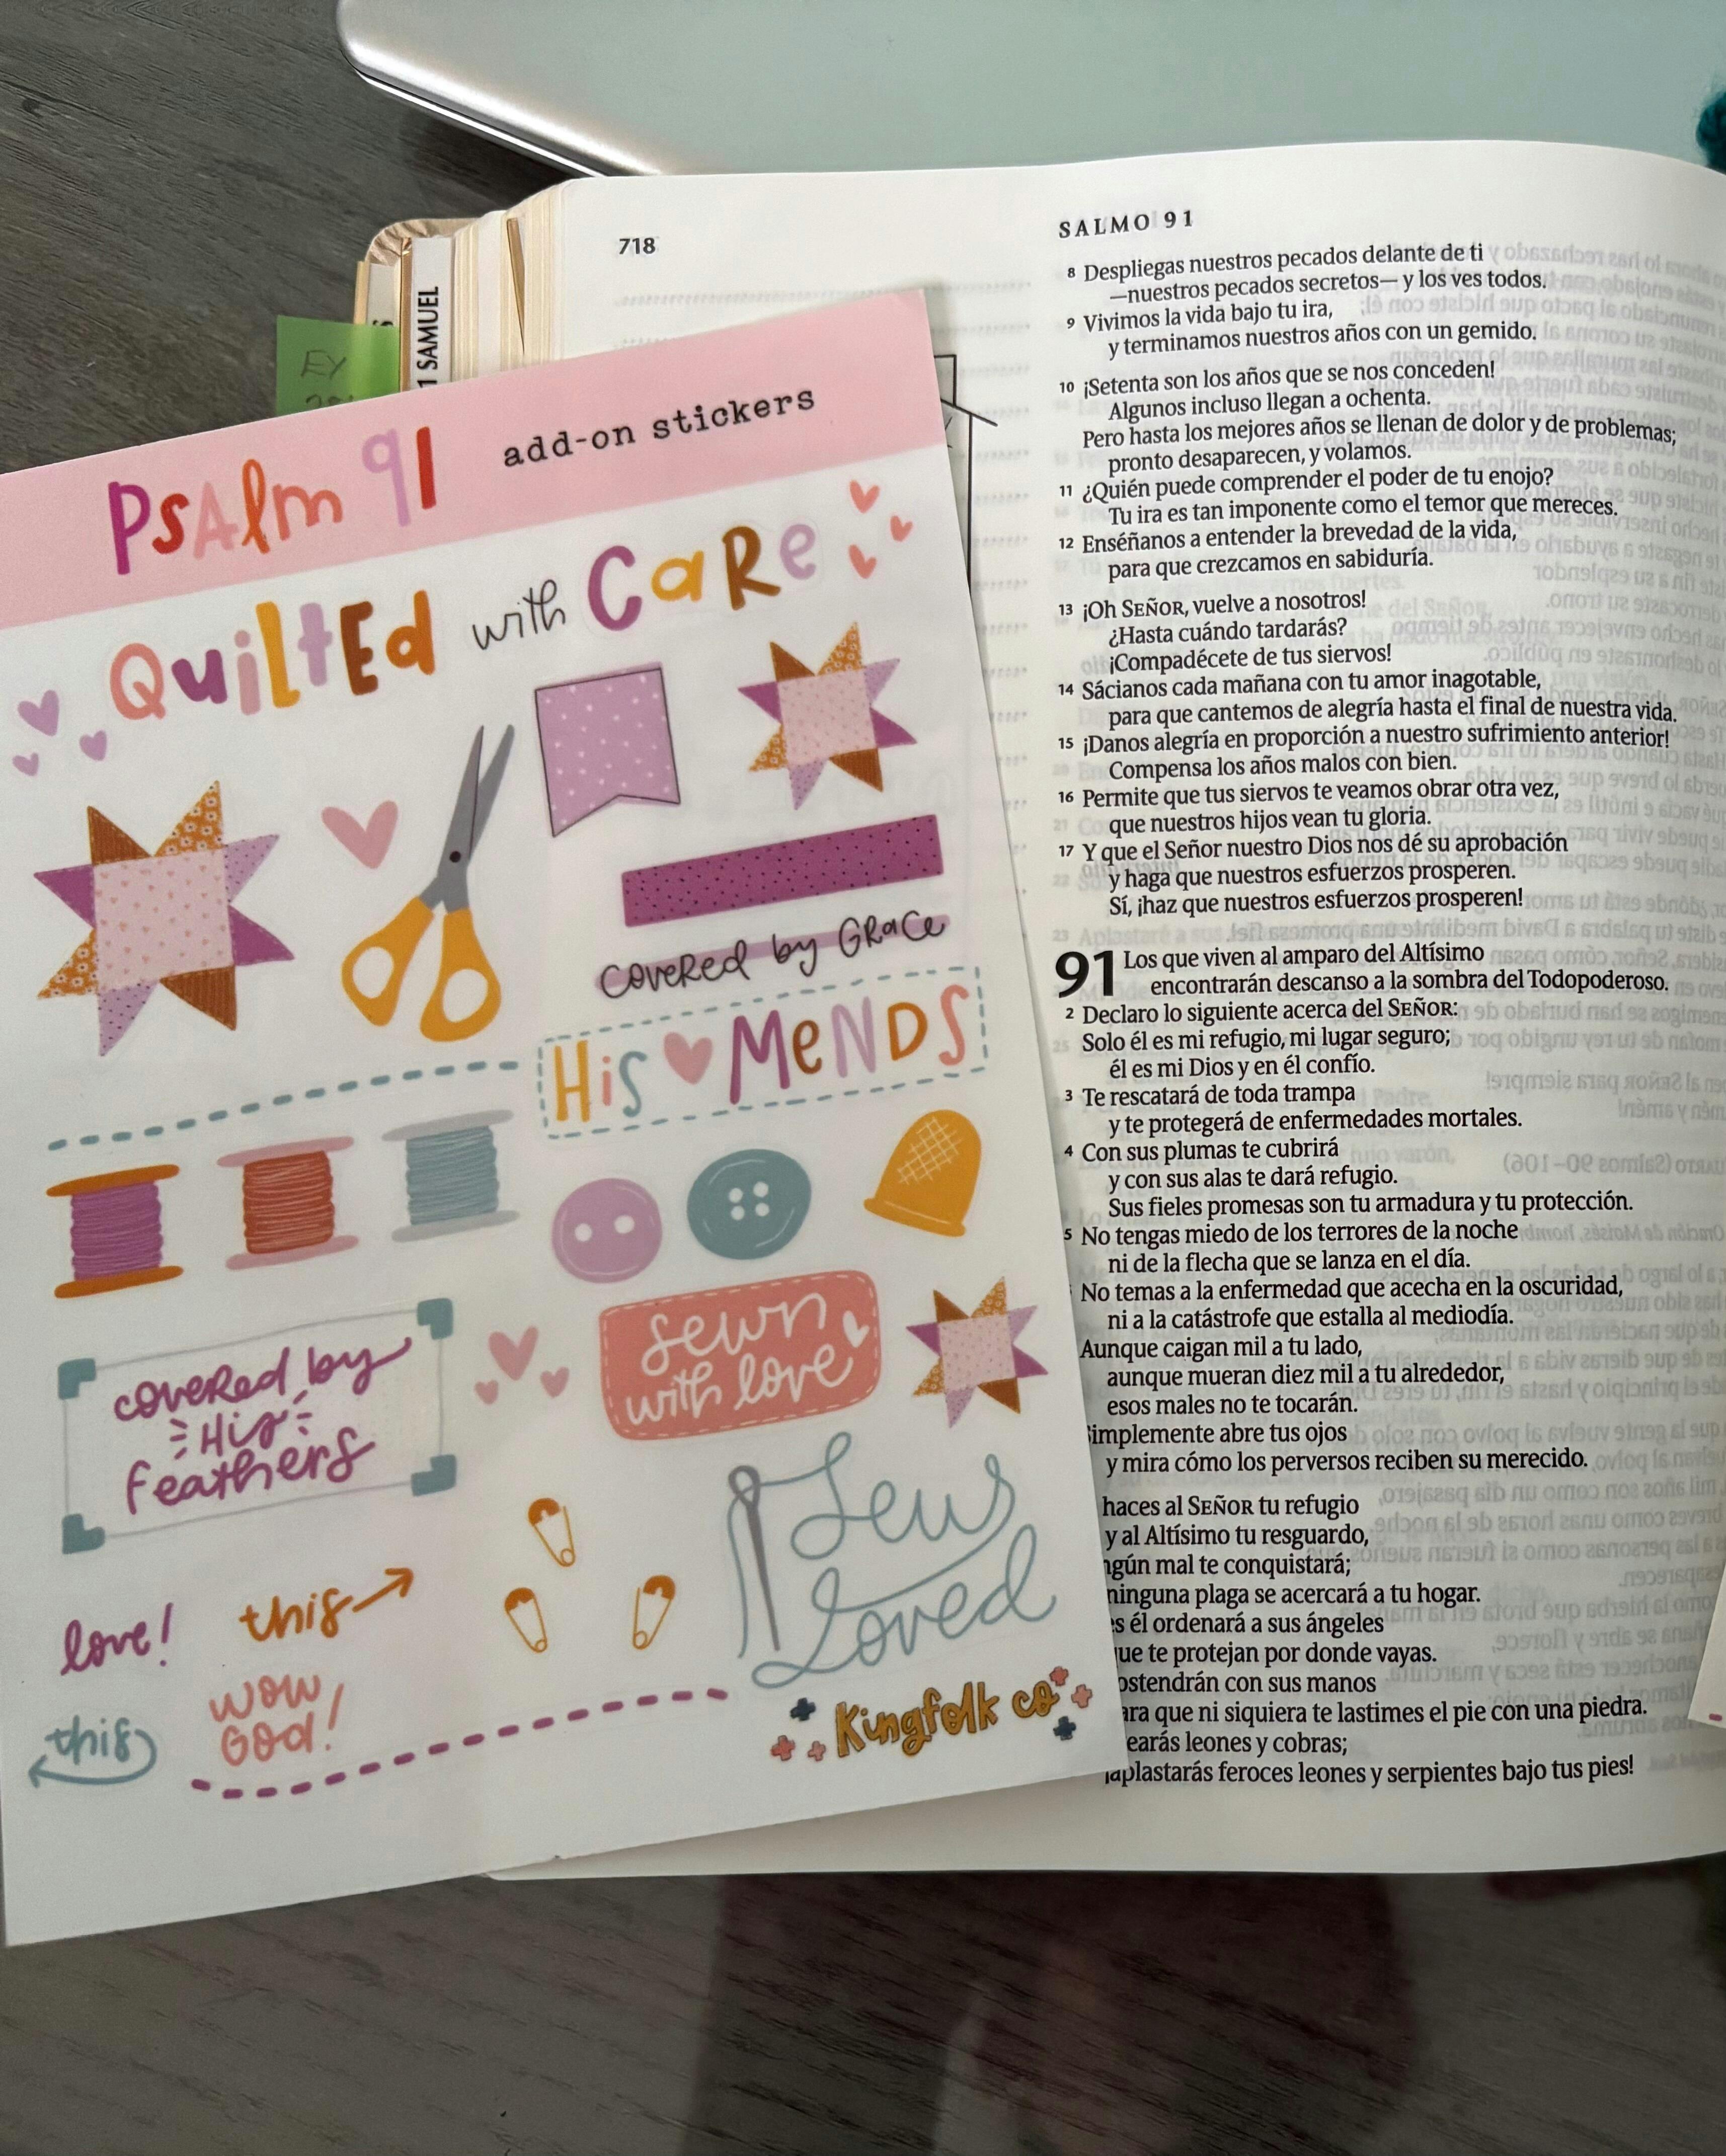 718
SALMO 91
1 SAMUEL
EX
Psalm 91 add-on stickers
Quilted with Care
covered by Grace
His Mends
sewn
with love
covered by
His
feathers
Sew
Loved
love!
this
wow
God!
this
Kingfolk co
8 Despliegas nuestros pecados delante de ti
—nuestros pecados secretos— y los ves todos.
9 Vivimos la vida bajo tu ira,
y terminamos nuestros años con un gemido.
10 ¡Setenta son los años que se nos conceden!
Algunos incluso llegan a ochenta.
Pero hasta los mejores años se llenan de dolor y de problemas;
pronto desaparecen, y volamos.
11 ¿Quién puede comprender el poder de tu enojo?
Tu ira es tan imponente como el temor que mereces.
12 Enséñanos a entender la brevedad de la vida,
para que crezcamos en sabiduría.
13 ¡Oh SEÑOR, vuelve a nosotros!
¿Hasta cuándo tardarás?
¡Compadécete de tus siervos!
14 Sácianos cada mañana con tu amor inagotable,
para que cantemos de alegría hasta el final de nuestra vida.
15 ¡Danos alegría en proporción a nuestro sufrimiento anterior!
Compensa los años malos con bien.
16 Permite que tus siervos te veamos obrar otra vez,
que nuestros hijos vean tu gloria.
17 Y que el Señor nuestro Dios nos dé su aprobación
y haga que nuestros esfuerzos prosperen.
Sí, ¡haz que nuestros esfuerzos prosperen!
91 Los que viven al amparo del Altísimo
encontrarán descanso a la sombra del Todopoderoso.
2 Declaro lo siguiente acerca del SEÑOR:
Solo él es mi refugio, mi lugar seguro;
él es mi Dios y en él confío.
3 Te rescatará de toda trampa
y te protegerá de enfermedades mortales.
4 Con sus plumas te cubrirá
y con sus alas te dará refugio.
Sus fieles promesas son tu armadura y tu protección.
5 No tengas miedo de los terrores de la noche
ni de la flecha que se lanza en el día.
No temas a la enfermedad que acecha en la oscuridad,
ni a la catástrofe que estalla al mediodía.
Aunque caigan mil a tu lado,
aunque mueran diez mil a tu alrededor,
esos males no te tocarán.
implemente abre tus ojos
y mira cómo los perversos reciben su merecido.
haces al SEÑOR tu refugio
y al Altísimo tu resguardo,
gún mal te conquistará;
ninguna plaga se acercará a tu hogar.
s él ordenará a sus ángeles
ue te protejan por donde vayas.
ostendrán con sus manos
ara que ni siquiera te lastimes el pie con una piedra.
earás leones y cobras;
aplastarás feroces leones y serpientes bajo tus pies!